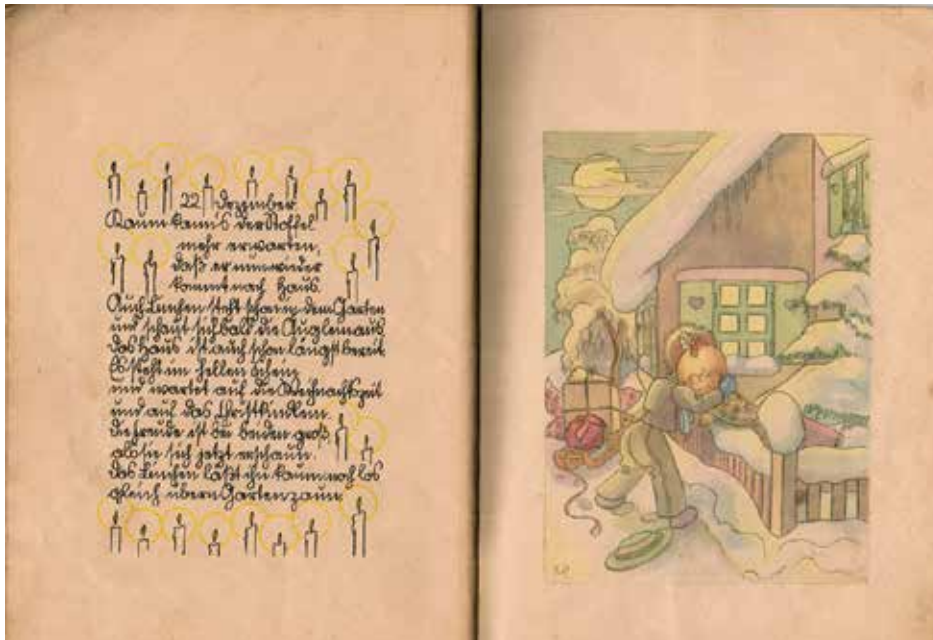 22 Dezember
Kaum kann's der Stoffel
mehr erwarten,
daß er nun wieder
kommt nach Haus.
Auch Lenchen steht schon in dem Garten
und schaut sich bald die Äuglein aus
das Haus ist auch schon längst bereit
Es steht im hellen Schein
und wartet auf die Weihnachtszeit
und auf das Christkindlein.
die Freude ist bei beiden groß,
als sie sich jetzt erschaun.
das Lenchen läßt ihn kaum noch los
gleich übern Gartenzaun.